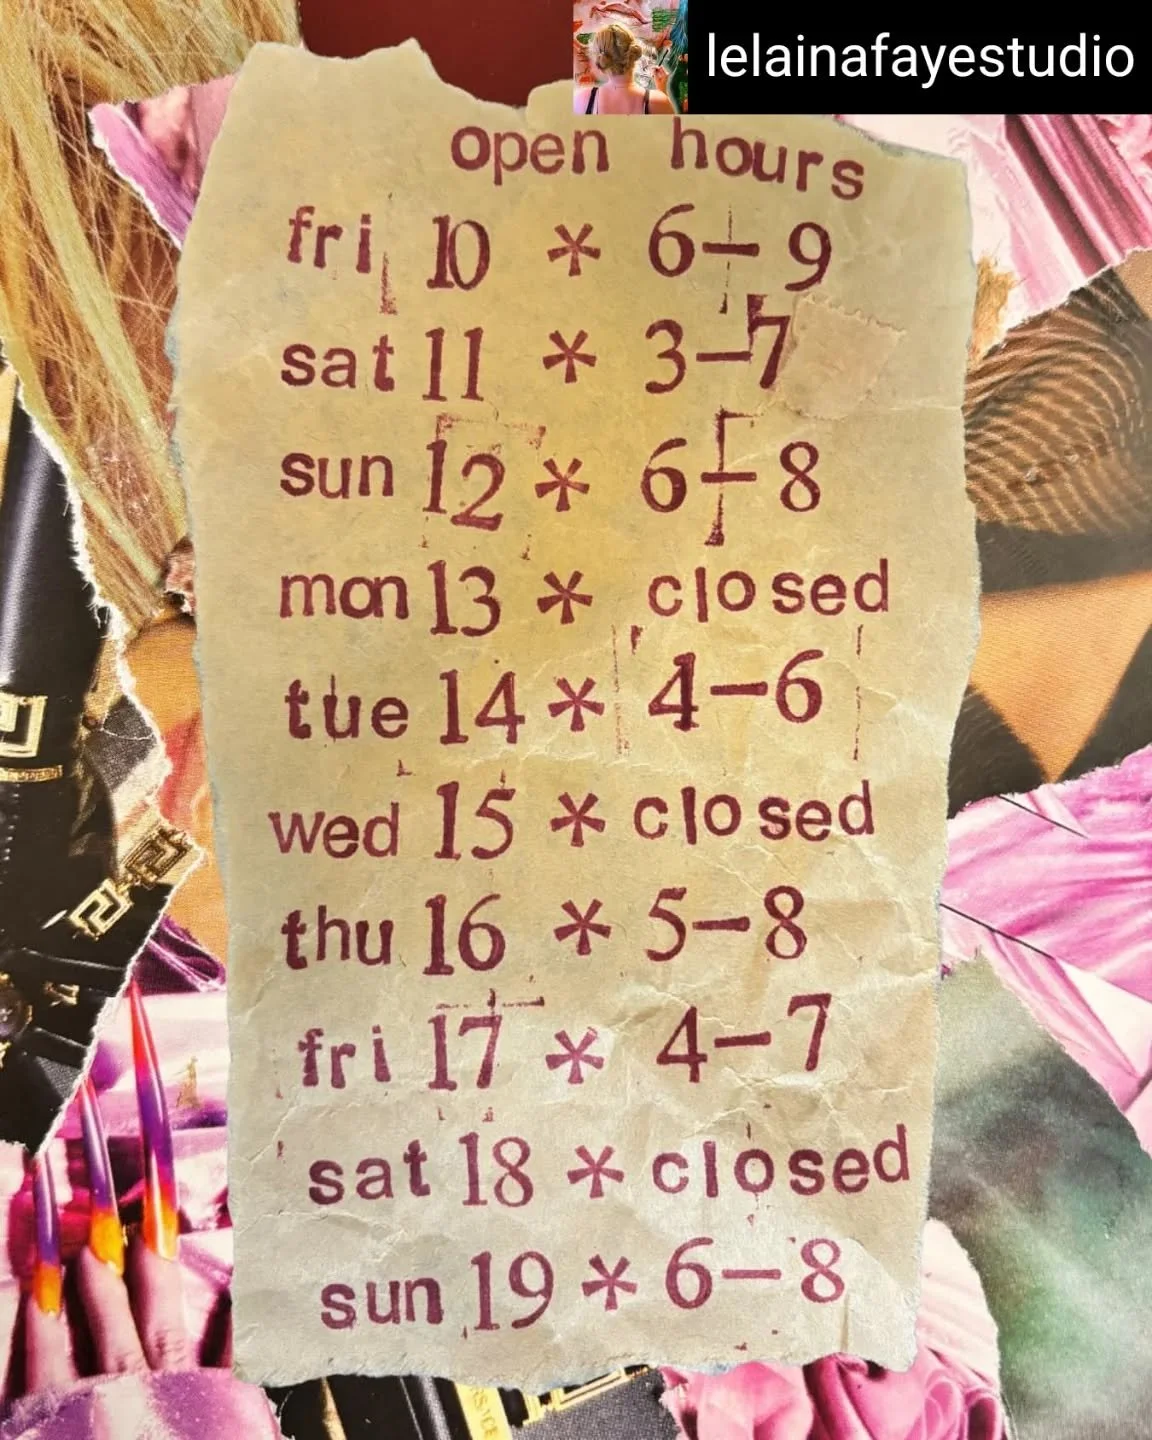 lelainafayestudio
open hours
fri 10 * 6-9
sat 11 * 3-7
sun 12 * 6-8
mon 13 * closed
tue 14 * 4-6
wed 15 * closed
thu 16 * 5-8
fri 17 * 4-7
sat 18 * closed
sun 19 * 6-8